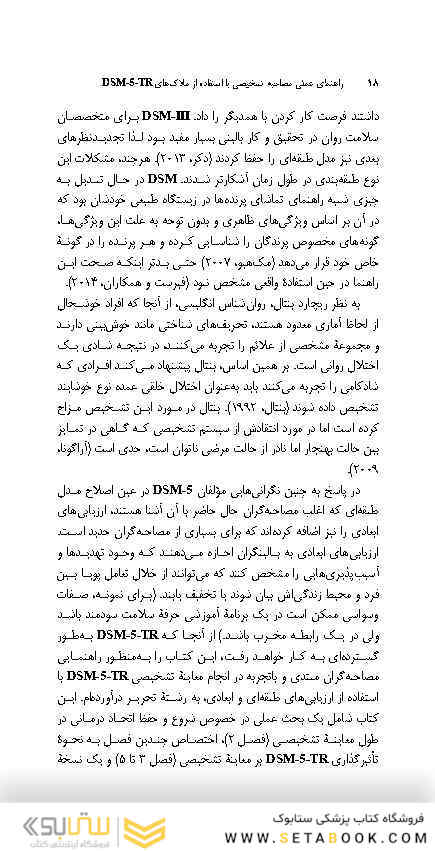 ۱۸ راهنمای عملی مصاحبه تشخیصی با استفاده از ملاک‌های DSM-5-TR
داشتند فرصت کار کردن با همدیگر را داد. DSM-III برای متخصصان
سلامت روان در تحقیق و کار بالینی بسیار مفید بود لذا تجدیدنظرهای
بعدی نیز مدل طبقه‌ای را حفظ کردند (دکر، ۲۰۱۳). هرچند، مشکلات این
نوع طبقه‌بندی در طول زمان آشکارتر شدند. DSM در حال تبدیل به
چیزی شبیه راهنمای تماشای پرنده‌ها در زیستگاه طبیعی خودشان بود که
در آن بر اساس ویژگی‌های ظاهری و بدون توجه به علت این ویژگی‌ها،
گونه‌های مخصوص پرندگان را شناسایی کرده و هر پرنده را در گونهٔ
خاص خود قرار می‌دهد (مک‌هیو، ۲۰۰۷) حتی بدتر اینکه صحت این
راهنما در حین استفادهٔ واقعی مشخص نبود (فیرست و همکاران، ۲۰۱۴).
به نظر ریچارد بنتال، روان‌شناس انگلیسی، از آنجا که افراد خوشحال
از لحاظ آماری معدود هستند، تحریف‌های شناختی مانند خوش‌بینی دارند
و مجموعهٔ مشخصی از علائم را تجربه می‌کنند، در نتیجه شادی یک
اختلال روانی است. بر همین اساس، بنتال پیشنهاد می‌کند افرادی که
شادکامی را تجربه می‌کنند باید به‌عنوان اختلال خلقی عمده نوع خوشایند
تشخیص داده شوند (بنتال، ۱۹۹۲). بنتال در مورد این تشخیص مزاح
کرده است اما در مورد انتقادش از سیستم تشخیصی که گاهی در تمایز
بین حالت بهنجار اما نادر از حالت مرضی ناتوان است، جدی است (آراگونا،
۲۰۰۹).
در پاسخ به چنین نگرانی‌هایی مؤلفان DSM-5 در عین اصلاح مدل
طبقه‌ای که اغلب مصاحبه‌گران حال حاضر با آن آشنا هستند، ارزیابی‌های
ابعادی را نیز اضافه کرده‌اند که برای بسیاری از مصاحبه‌گران جدید است.
ارزیابی‌های ابعادی به بالینگران اجازه می‌دهند که وجود تهدیدها و
آسیب‌پذیری‌هایی را مشخص کنند که می‌توانند از خلال تعامل پویا بین
فرد و محیط زندگی‌اش بیان شوند یا تخفیف یابند. (برای نمونه، صفات
وسواسی ممکن است در یک برنامهٔ آموزشی حرفهٔ سلامت سودمند باشد
ولی در یک رابطه مخرب باشد.) از آنجا که DSM-5-TR به‌طور
گسترده‌ای به کار خواهد رفت، این کتاب را به‌منظور راهنمایی
مصاحبه‌گران مبتدی و باتجربه در انجام معاینهٔ تشخیصی DSM-5-TR با
استفاده از ارزیابی‌های طبقه‌ای و ابعادی، به رشتهٔ تحریر درآورده‌ام. این
کتاب شامل یک بحث عملی در خصوص شروع و حفظ اتحاد درمانی در
طول معاینهٔ تشخیصی (فصل ۲)، اختصاص چندین فصل به نحوهٔ
تأثیرگذاری DSM-5-TR بر معاینهٔ تشخیصی (فصل ۳ تا ۵) و یک نسخهٔ
فروشگاه کتاب پزشکی ستابوک
WWW.SETABOOK.COM
ستابوک
فروشگاه اینترنتی کتاب